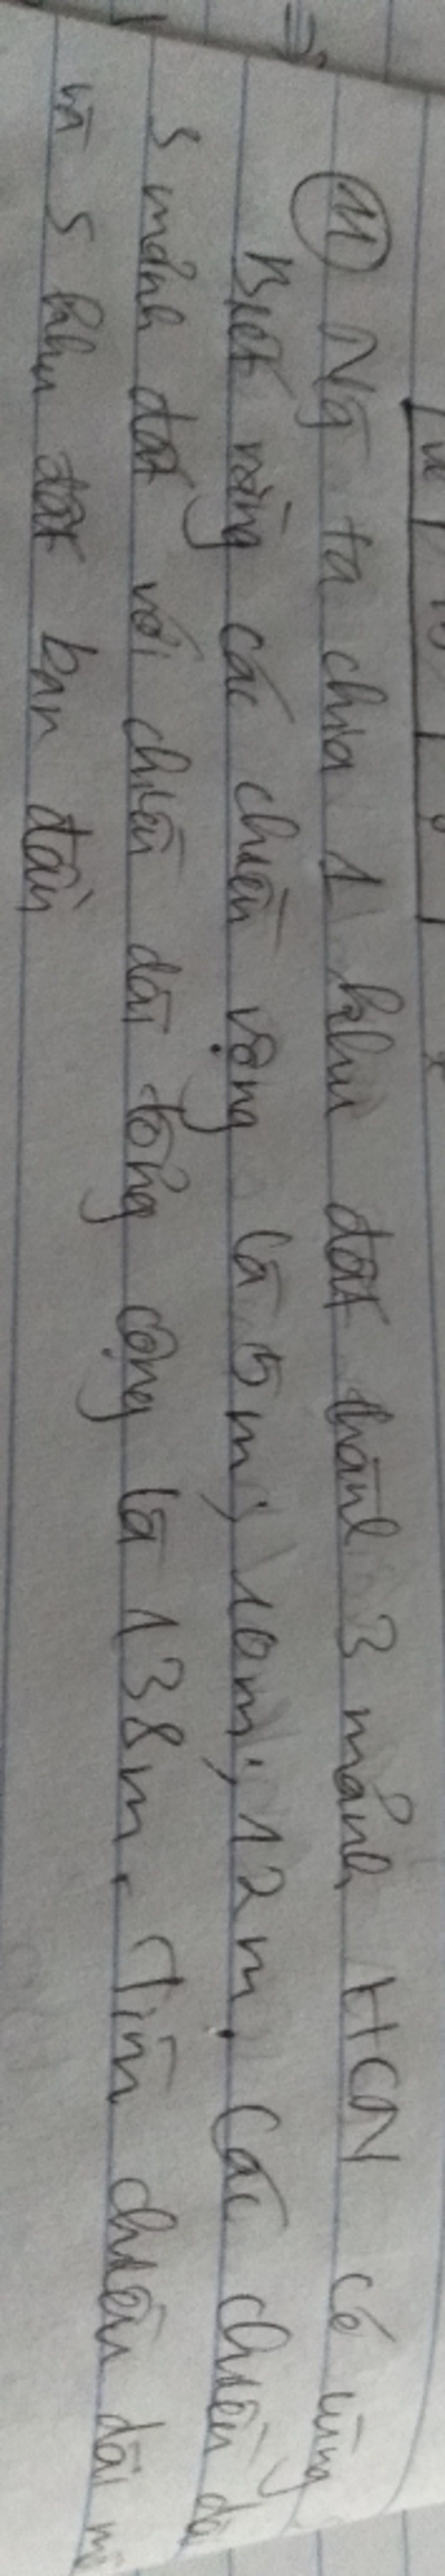 ⇒
11 Ng ta chia 1 khu đất thành 3 mảnh HCN có cùng
Biết rằng các chiều rộng là 5m; 10m; 12m. Các chiều dà
S mảnh đất với chiều dài tổng cộng là 138m. Tìm chiều dài m
và S khu đất ban đầu